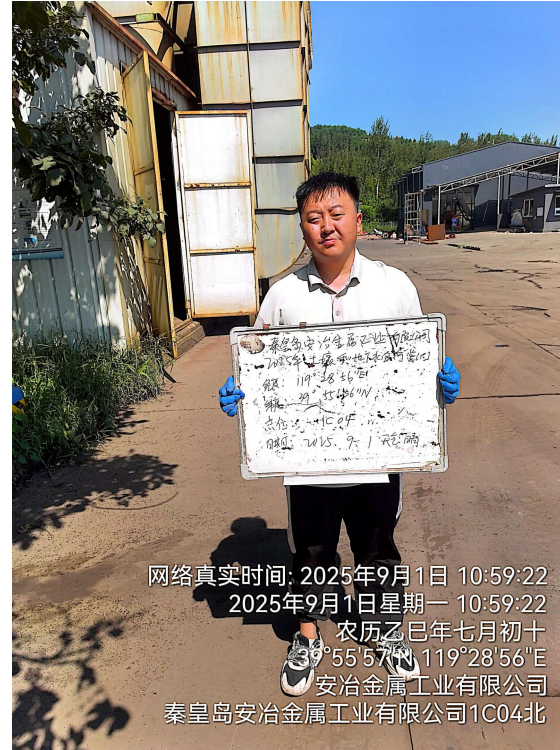 秦皇岛安冶金属工业有限公司
2025年土壤和地下水自行监测
经度: 119°28′56″E
纬度: 39°55′56″N
点位: 1C04
日期: 2025.9.1 天气:晴
网络真实时间: 2025年9月1日 10:59:22
2025年9月1日星期一 10:59:22
农历乙巳年七月初十
39°55'57"N 119°28'56"E
安冶金属工业有限公司
秦皇岛安冶金属工业有限公司1C04北